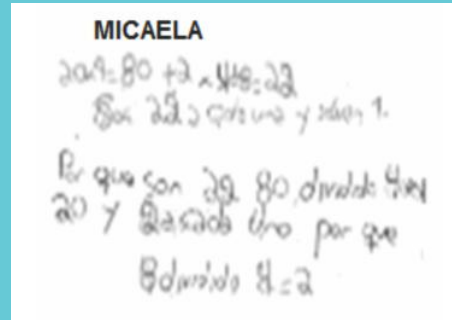 MICAELA
20x4=80 +2 x 4=8=22
Son 22 a cada uno y
Por que son 22 80 dividido 4 es
20 y 2 a cada uno por que
8 dividido 4=2